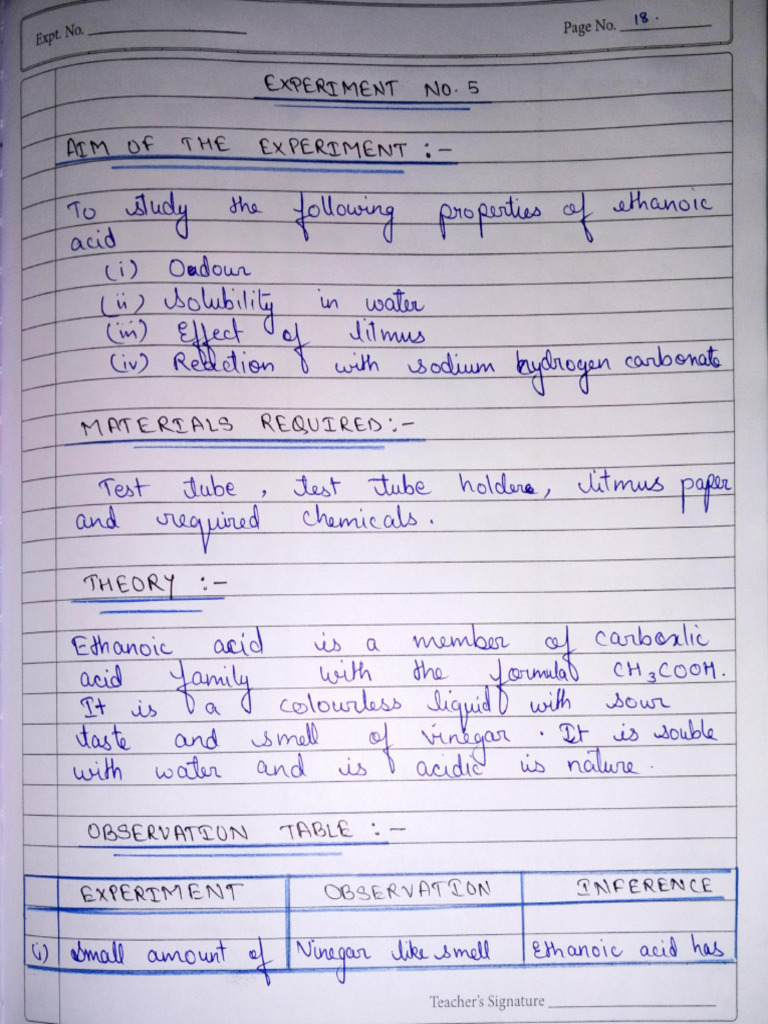 Expt. No.
Page No. 18.
EXPERIMENT NO. 5
AIM OF THE EXPERIMENT :-
To study the following properties of ethanoic
acid
(i) Oudour
(ii) Solubility in water
(iii) Effect of litmus
(iv) Reaction with sodium hydrogen carbonate
MATERIALS REQUIRED:-
Test tube, test tube holder, litmus paper
and required chemicals.
THEORY :-
Ethanoic acid is a member of carboxlic
acid family with the formula CH3COOH.
It is a colourless liquid with sour
taste and smell of vinegar. It is souble
with water and is acidic is nature.
OBSERVATION TABLE :-
EXPERIMENT OBSERVATION INFERENCE
(i) Small amount of Vinegar like smell Ethanoic acid has
Teacher's Signature